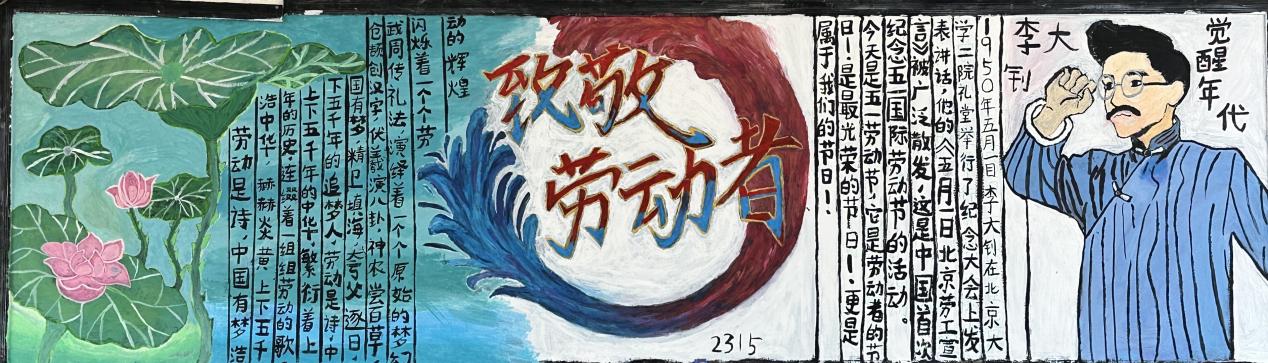 劳动是诗，中国有梦 浩
浩中华，赫赫炎黄 上下五千
年的历史，连缀着一组组劳动的歌
上下五千年的中华，繁衍着上
下五千年的追梦人，劳动是诗，中
国有梦，精卫填海，夸父逐日，
仓颉创汉字，伏羲演八卦，神农尝百草
武周传礼法，演绎着一个个原始的梦幻
闪烁着一个个劳
动的辉煌
致敬
劳动者
2315
觉醒年代
李大钊
1950年五月一日李大钊在北京大
学二院礼堂举行了纪念大会上发
表讲话，他的《五月一日北京劳工宣
言》被广泛散发，这是中国首次
纪念五一国际劳动节的活动。
今天是五一劳动节，它是劳动者的节
日！是最光荣的节日！更是
属于我们的节日！